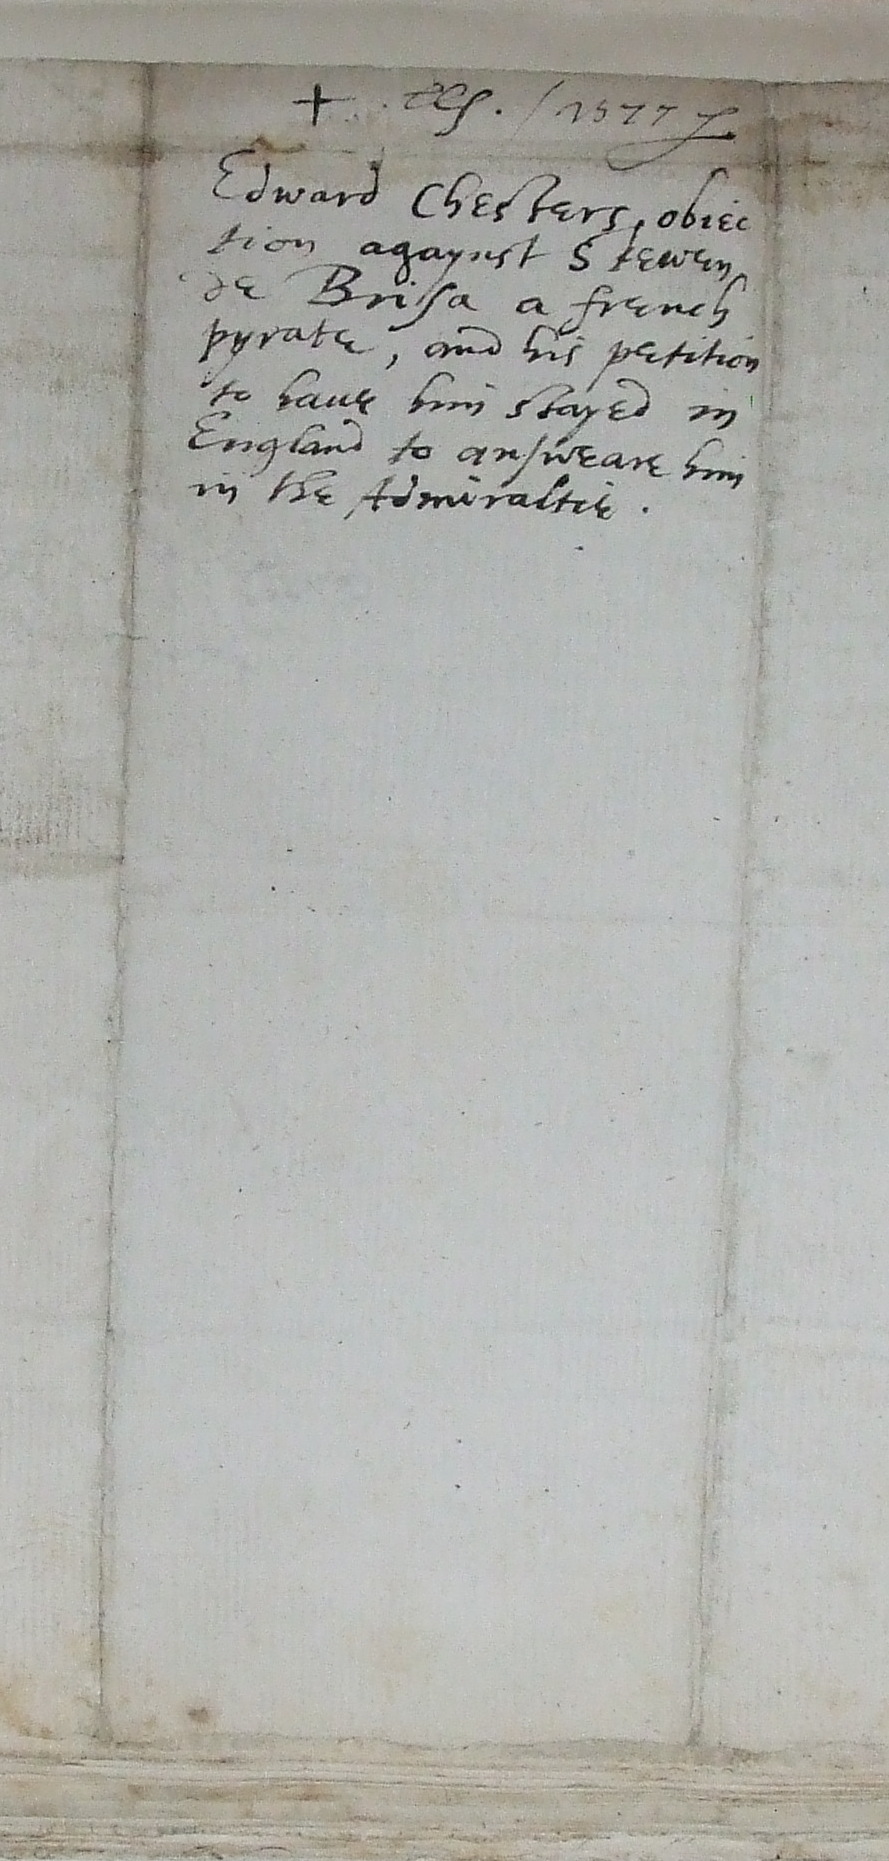 + . / 1577
Edward Chesters, obiec
tion agaynst Stewen
de Brisa a french
pyrate, and his petition
to haue him stayed in
England to answeare him
in the Admiraltie .